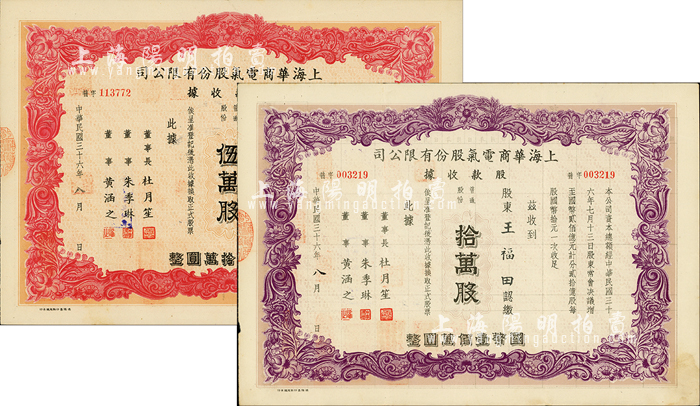 上海陽明拍賣
上海華商電氣股份有限公司
款收據
字 號
113772
普通
股份
伍萬股
俟呈准登記後憑此收據換取正式股票
此據
拾萬圓整
董事長 杜月笙
董事 朱季琳
董事 黃涵之
中華民國三十六年 八月 日
上海華商電氣股份有限公司
股款收據
字 號
003219
003219
本公司資本總額經中華民國三十
六年七月十三日股東常會決議增
至國幣貳佰億元計分貳拾億股每
股國幣拾元一次收足
茲收到
股東 王福田 認繳
普通
股份
拾萬股
國幣壹佰萬圓整
俟呈准登記後憑此收據換取正式股票
此據
董事長 杜月笙
董事 朱季琳
董事 黃涵之
中華民國三十六年 八月 日
上海陽明拍賣